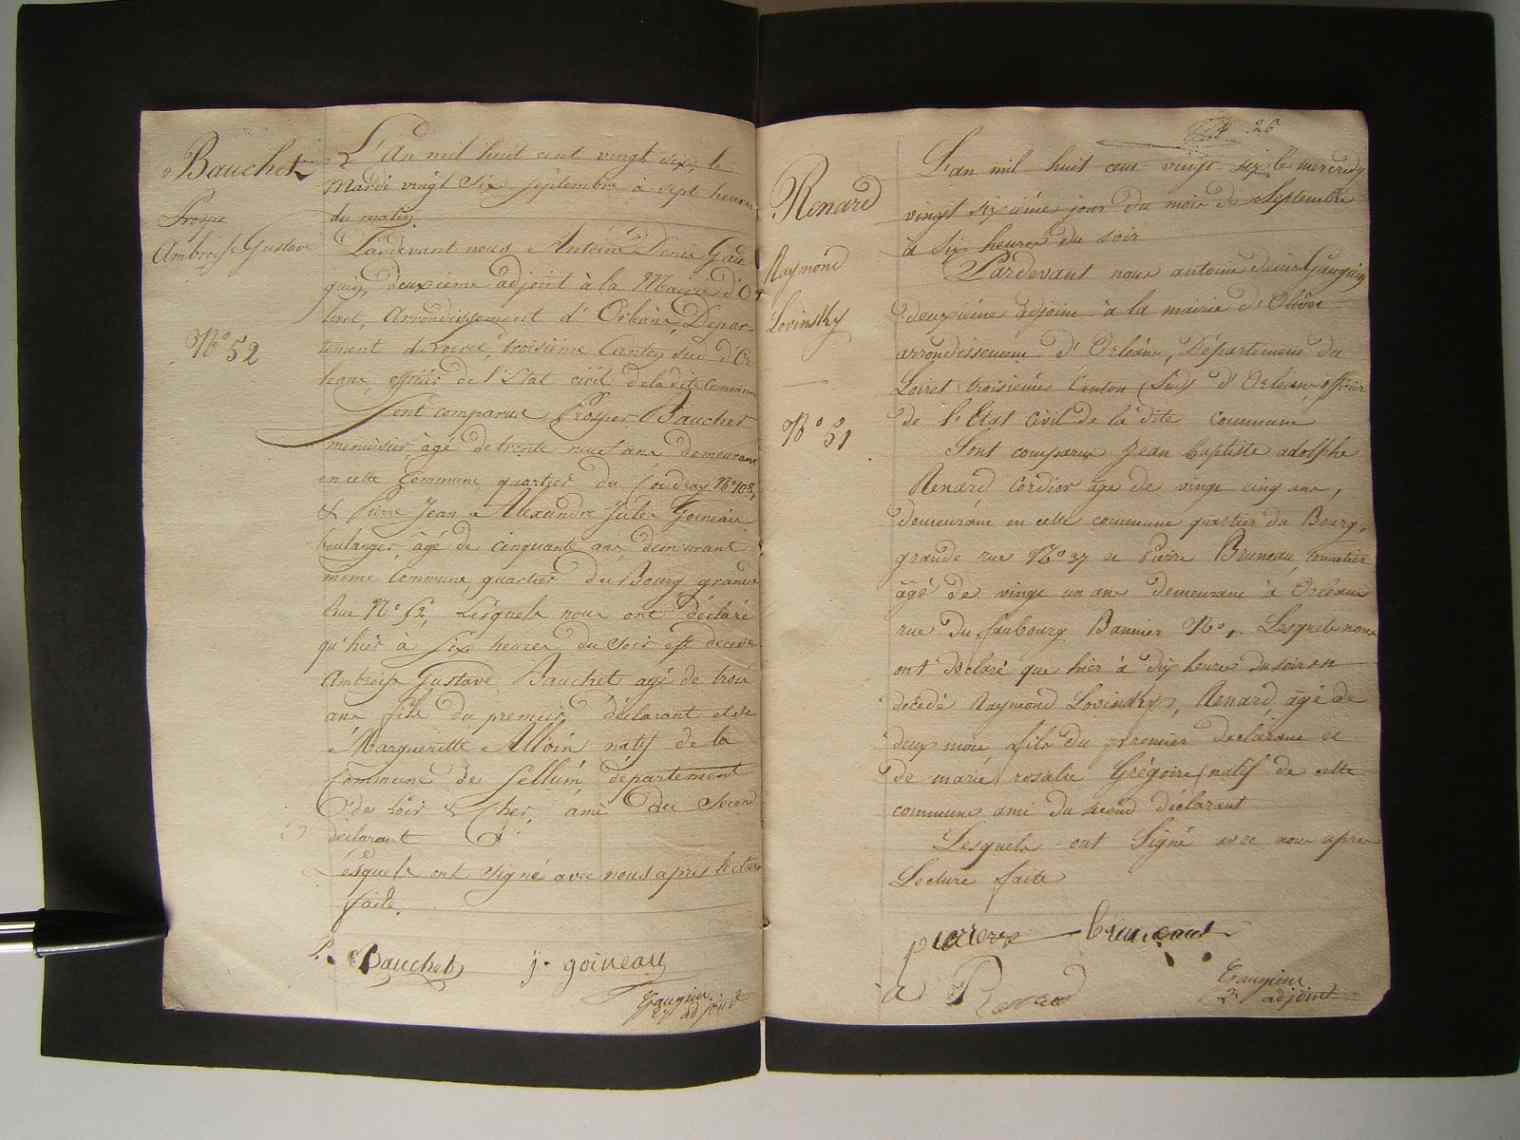 Bauchet
Prospe
Ambroise Gustave
No 52
L'An mil huit cent vingt six, le
Mardi vingt six septembre à sept heures
du matin
Pardevant nous Antoine Denis Gau
guin, deuxième adjoint à la Mairie d'O
livet, Arrondissement d'Orléans, Depar-
tement du Loiret, troisième Canton sud d'Or
leans, officier de l'Etat civil de la dite Commune
Sont comparus Prosper Bauchet
menuisier, âgé de trente neuf ans demeurant
en cette Commune quartier du Coudray No 103,
& Pierre Jean Alexandre Jules Goineau
boulanger, âgé de cinquante ans demeurant
même Commune quartier du Bourg grande
Rue No 52, Lesquels nous ont déclaré
qu'hier à six heures du soir est décédé
Ambroise Gustave Bauchet agé de trois
ans fils du premier déclarant et de
Marguerite Alloin natif de la
Commune de Sellun département
de Loir & Cher, ami du Second
déclarant
Lesquels ont signé avec nous après lecture
faite.
P. Bauchet j. goineau
Gauguin
2e adjoint
26
Renard
Raymond
Lovinsky
No 51
L'an mil huit cent vingt six le mercredy
vingt sixième jour du mois de Septembre
à six heures du soir
Pardevant nous antoine denis Gauguin
deuxième adjoint à la mairie d'Olivet
arrondissement d'Orléans, Département du
Loiret troisième Canton Sud d'Orléans officier
de l'Etat Civil de la dite commune
Sont comparus Jean baptiste adolphe
Renard Cordier âgé de vingt cinq ans,
demeurant en cette commune quartier du Bourg,
grande rue No 37 et Pierre Bruneau
âgé de vingt un ans demeurant à Orléans
rue du faubourg Bannier No 1. Lesquels nous
ont déclaré que hier à dix heures du soir est
décédé Raymond Lovinsky, Renard, âgé de
deux mois fils du premier déclarant et
de marie rosalie Grégoire natif de cette
commune ami du second déclarant
Lesquels ont Signé avec nous apres
Lecture faite
pierre bruneau
a Renard
Gauguin
2e adjoint